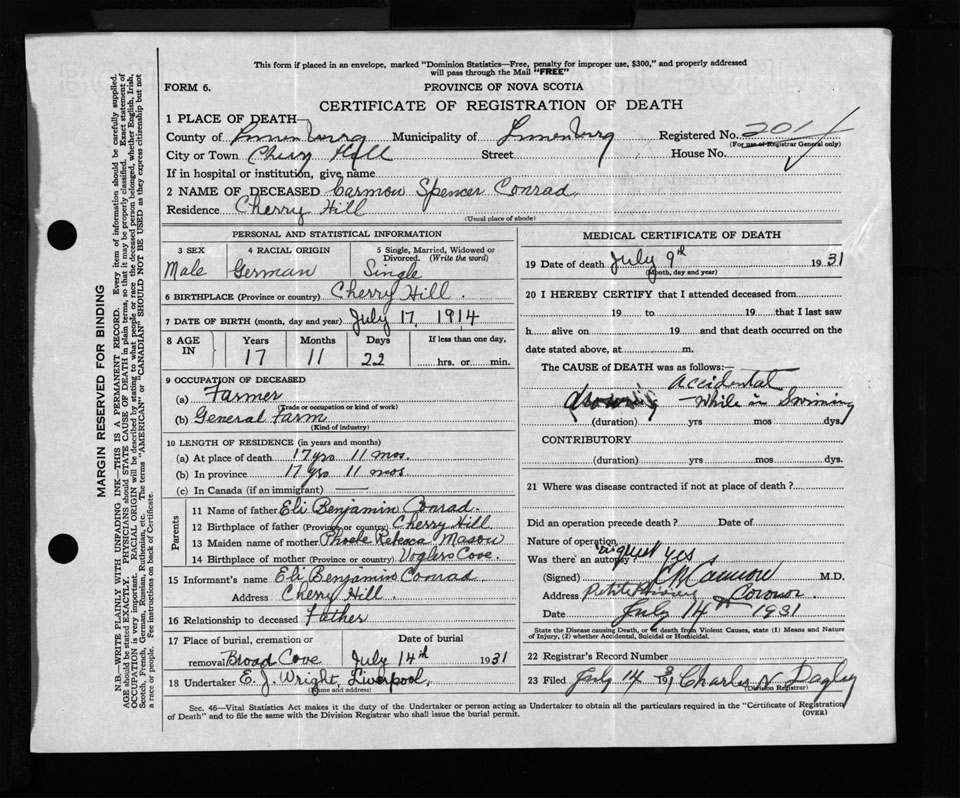 This form if placed in an envelope, marked "Dominion Statistics—Free, penalty for improper use, $300," and properly addressed
will pass through the Mail "FREE"
FORM 6.
PROVINCE OF NOVA SCOTIA
CERTIFICATE OF REGISTRATION OF DEATH
1 PLACE OF DEATH
County of Lunenburg Municipality of Lunenburg Registered No. 2011
(For use of Registrar General only)
City or Town Chery Hill Street House No.
If in hospital or institution, give name
2 NAME OF DECEASED Carmon Spencer Conrad
Residence Cherry Hill
(Usual place of abode)
PERSONAL AND STATISTICAL INFORMATION
3 SEX 4 RACIAL ORIGIN 5 Single, Married, Widowed or Divorced. (Write the word)
Male German Single
6 BIRTHPLACE (Province or country) Cherry Hill.
7 DATE OF BIRTH (month, day and year) July 17, 1914
8 AGE IN Years Months Days If less than one day,
17 11 22 hrs. or min.
9 OCCUPATION OF DECEASED
(a) Farmer
(Trade or occupation or kind of work)
(b) General Farm
(Kind of industry)
10 LENGTH OF RESIDENCE (in years and months)
(a) At place of death 17 yrs 11 mos.
(b) In province 17 yrs 11 mos
(c) In Canada (if an immigrant)
Parents
11 Name of father Eli Benjamin Conrad.
12 Birthplace of father (Province or country) Cherry Hill
13 Maiden name of mother Phoebe Rebecca Mason
14 Birthplace of mother (Province or country) Voglers Cove.
15 Informant's name Eli Benjamin Conrad
Address Cherry Hill.
16 Relationship to deceased Father
17 Place of burial, cremation or removal Broad Cove Date of burial July 14th 1931
18 Undertaker E. J. Wright, Liverpool,
(Name and address)
MEDICAL CERTIFICATE OF DEATH
19 Date of death July 9th 1931
(Month, day and year)
20 I HEREBY CERTIFY that I attended deceased from
19 to 19 that I last saw
h alive on 19 and that death occurred on the
date stated above, at m.
The CAUSE of DEATH was as follows:—
Accidental
drowning - While in Swiming
(duration) yrs mos dys
CONTRIBUTORY
(duration) yrs mos. dys.
21 Where was disease contracted if not at place of death?
Did an operation precede death? Date of
Nature of operation
Was there an autopsy? inquest yes
(Signed) M.D.
Address Petite Riviere Coronor.
Date July 14th 1931
State the Disease causing Death, or in death from Violent Causes, state (1) Means and Nature
of Injury, (2) whether Accidental, Suicidal or Homicidal.
22 Registrar's Record Number
23 Filed July 14 1931 Charles N Dagley
(Division Registrar)
Sec. 46—Vital Statistics Act makes it the duty of the Undertaker or person acting as Undertaker to obtain all the particulars required in the "Certificate of Registration
of Death" and to file the same with the Division Registrar who shall issue the burial permit.
(OVER)
MARGIN RESERVED FOR BINDING
N.B.—WRITE PLAINLY WITH UNFADING INK—THIS IS A PERMANENT RECORD. Every item of information should be carefully supplied.
AGE should be stated EXACTLY. PHYSICIANS should STATE CAUSE OF DEATH in plain terms, so that it may be properly classified. Exact statement of
OCCUPATION is very important. RACIAL ORIGIN will be described by stating to what people or race the deceased person belonged, whether English, Irish,
Scotch, French, German, Russian, Ruthenian, etc. The terms "AMERICAN" or "CANADIAN" SHOULD NOT BE USED as they express citizenship but not
a race or people. See instructions on back of Certificate.